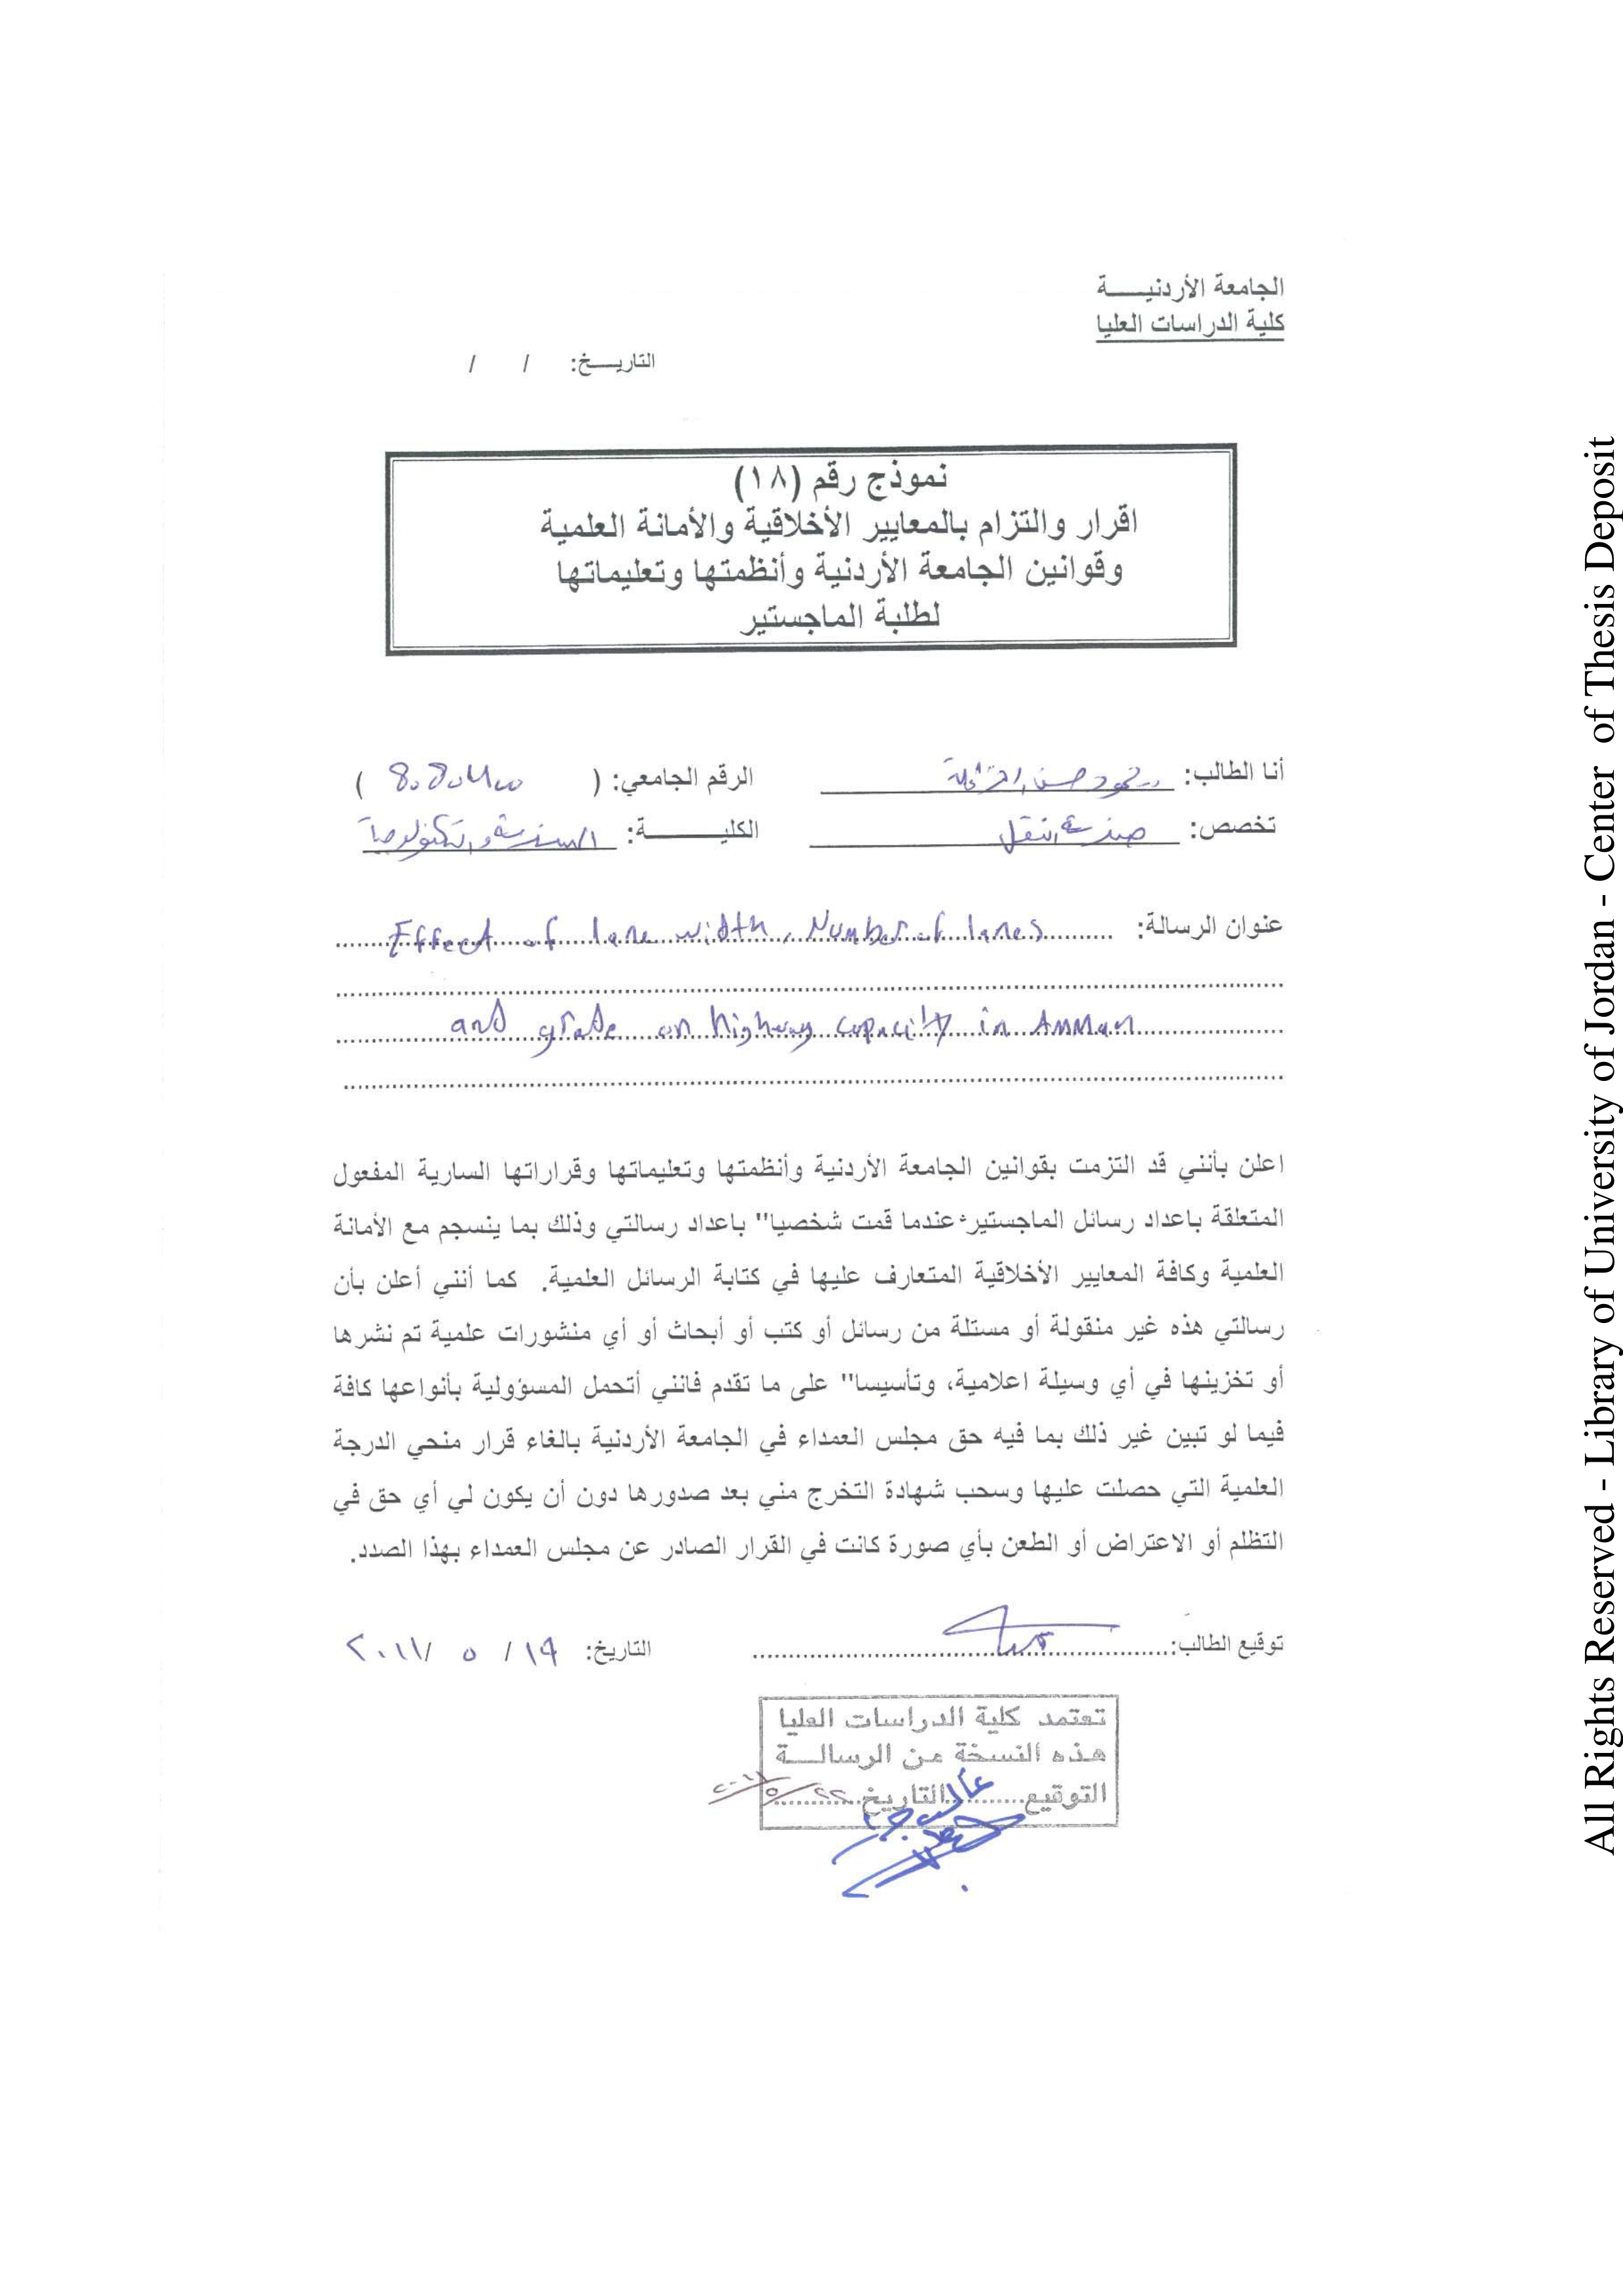 الجامعة الأردنيـــــة
كلية الدراسات العليا
التاريـــخ: / /
نموذج رقم (١٨)
اقرار والتزام بالمعايير الأخلاقية والأمانة العلمية
وقوانين الجامعة الأردنية وأنظمتها وتعليماتها
لطلبة الماجستير
أنا الطالب: محمود حسن الرقم الجامعي: ( )
تخصص: هندسة النقل الكليـــــــة: الهندسة والتكنولوجيا
عنوان الرسالة: Effect of lane width, Number of lanes
and grade on highway capacity in Amman
اعلن بأنني قد التزمت بقوانين الجامعة الأردنية وأنظمتها وتعليماتها وقراراتها السارية المفعول
المتعلقة باعداد رسائل الماجستير عندما قمت شخصيا" باعداد رسالتي وذلك بما ينسجم مع الأمانة
العلمية وكافة المعايير الأخلاقية المتعارف عليها في كتابة الرسائل العلمية. كما أنني أعلن بأن
رسالتي هذه غير منقولة أو مستلة من رسائل أو كتب أو أبحاث أو أي منشورات علمية تم نشرها
أو تخزينها في أي وسيلة اعلامية، وتأسيسا" على ما تقدم فانني أتحمل المسؤولية بأنواعها كافة
فيما لو تبين غير ذلك بما فيه حق مجلس العمداء في الجامعة الأردنية بالغاء قرار منحي الدرجة
العلمية التي حصلت عليها وسحب شهادة التخرج مني بعد صدورها دون أن يكون لي أي حق في
التظلم أو الاعتراض أو الطعن بأي صورة كانت في القرار الصادر عن مجلس العمداء بهذا الصدد.
توقيع الطالب: التاريخ: ١٩ / ٥ /٢٠١١
تعتمد كلية الدراسات العليا
هذه النسخة من الرسالـــة
التوقيع............التاريخ ٢٢/٥/٢٠١١
All Rights Reserved - Library of University of Jordan - Center of Thesis Deposit